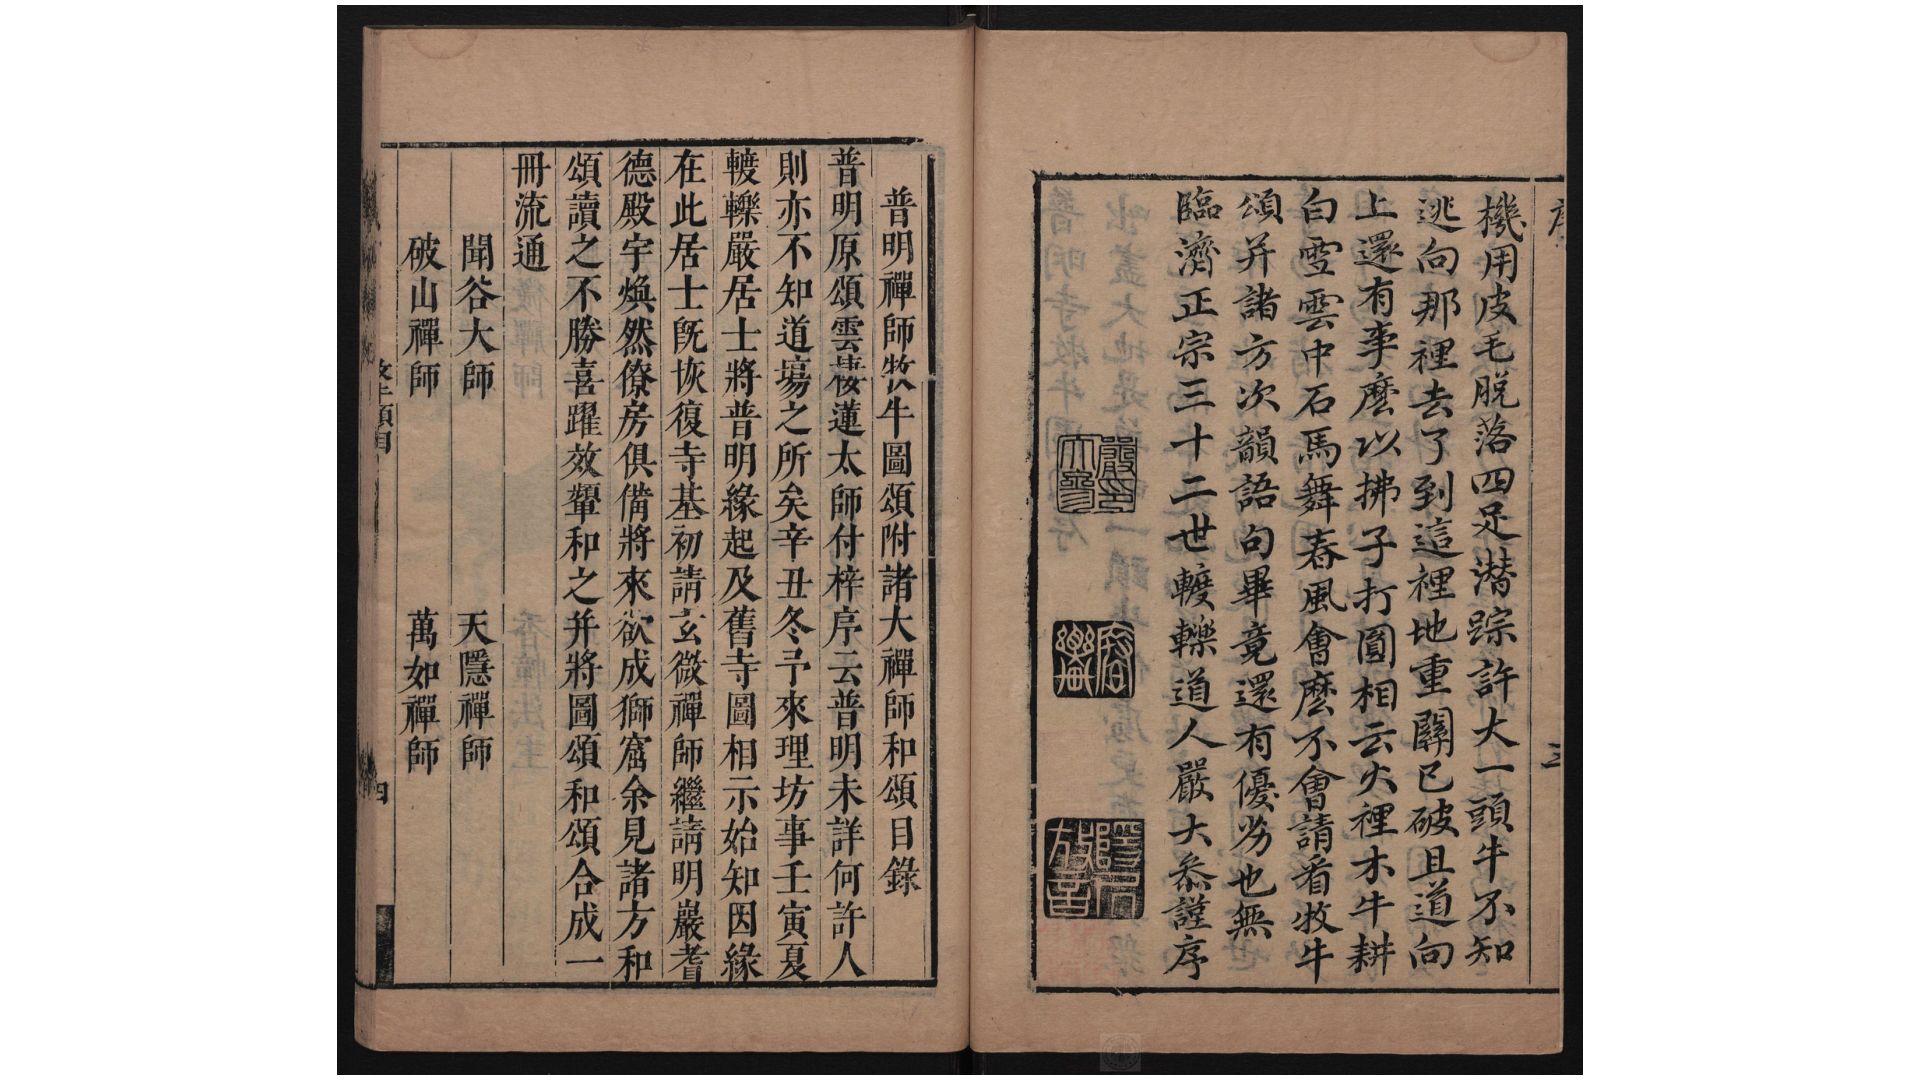 機用皮毛脱落四足潜踪許大一頭牛不知
逃向那裡去了到這裡地重關已破且道向
上還有事麽以拂子打圓相云火裡木牛耕
白雪雲中石馬舞春風會麽不會請看牧牛
頌并諸方次韻語句畢竟還有優劣也無
臨濟正宗三十二世轆轢道人嚴大叅謹序
三
普明禪師牧牛圖頌附諸大禪師和頌目錄
普明原頌雲棲蓮太師付梓序云普明未詳何許人
則亦不知道塲之所矣辛丑冬予來理坊事壬寅夏
轆轢嚴居士將普明緣起及舊寺圖相示始知因緣
在此居士旣恢復寺基初請玄微禪師繼請明巖耆
德殿宇煥然僚房俱備將來欲成獅窟余見諸方和
頌讀之不勝喜躍效顰和之并將圖頌和頌合成一
冊流通
聞谷大師 天隱禪師
破山禪師 萬如禪師
四